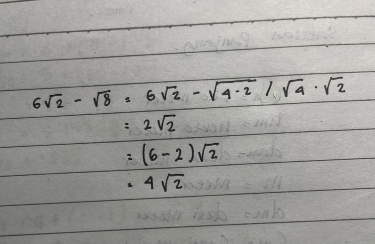 6√2 - √8 = 6√2 - √4·2 / √4 · √2
= 2√2
= (6-2)√2
= 4√2